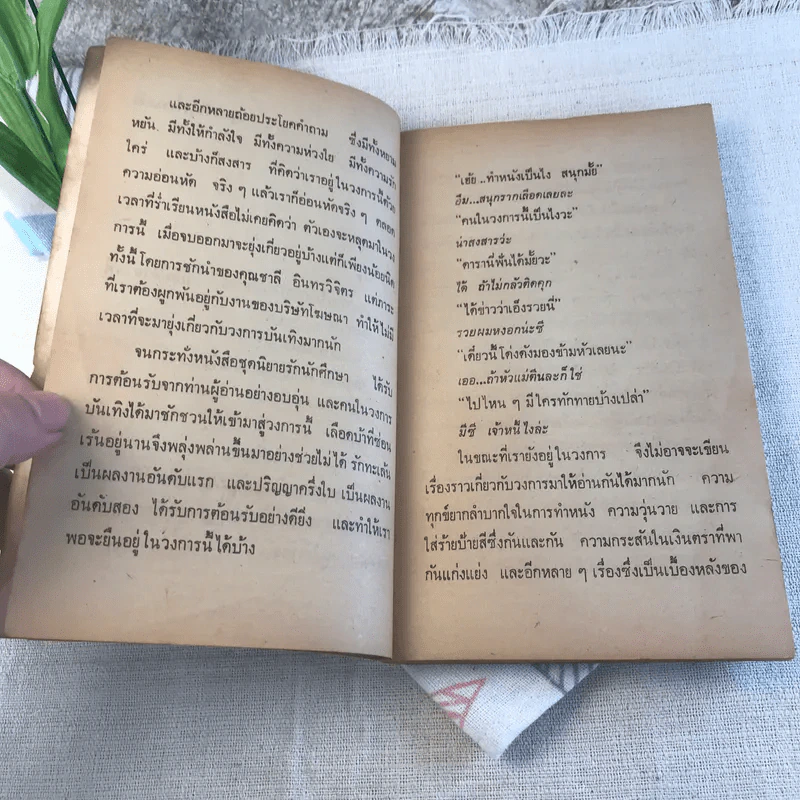 และอีกหลายถ้อยประโยคคำถาม ซึ่งมีทั้งหยาม
หยัน มีทั้งให้กำลังใจ มีทั้งความห่วงใย มีทั้งความรัก
ใคร่ และบ้างก็สงสาร ที่คิดว่าเราอยู่ในวงการนี้ด้วย
ความอ่อนหัด จริง ๆ แล้วเราก็อ่อนหัดจริง ๆ ตลอด
เวลาที่ร่ำเรียนหนังสือไม่เคยคิดว่า ตัวเองจะหลุดมาในวง
การนี้ เมื่อจบออกมาจะยุ่งเกี่ยวอยู่บ้างแต่ก็เพียงน้อยนิด
ทั้งนี้โดยการชักนำของคุณชาลี อินทรวิจิตร แต่ภาระ
ที่เราต้องผูกพันอยู่กับงานของบริษัทโฆษณา ทำให้ไม่มี
เวลาที่จะมายุ่งเกี่ยวกับวงการบันเทิงมากนัก
จนกระทั่งหนังสือชุดนิยายรักนักศึกษา ได้รับ
การต้อนรับจากท่านผู้อ่านอย่างอบอุ่น และคนในวงการ
บันเทิงได้มาชักชวนให้เข้ามาสู่วงการนี้ เลือดบ้าที่ซ่อน
เร้นอยู่นานจึงพลุ่งพล่านขึ้นมาอย่างช่วยไม่ได้ รักทะเล้น
เป็นผลงานอันดับแรก และปริญญาครึ่งใบ เป็นผลงาน
อันดับสอง ได้รับการต้อนรับอย่างดียิ่ง และทำให้เรา
พอจะยืนอยู่ในวงการนี้ได้บ้าง
"เฮ้ย ..ทำหนังเป็นไง สนุกมั้ย"
อืม...สนุกรากเลือดเลยละ
"คนในวงการนี้เป็นไงวะ"
น่าสงสารว่ะ
"ดารานี่ฟันได้มั้ยวะ"
ได้ ถ้าไม่กลัวติดคุก
"ได้ข่าวว่าเอ็งรวยนี่"
รวยผมหงอกน่ะซี
"เดี๋ยวนี้โด่งดังมองข้ามหัวเลยนะ"
เออ...ถ้าหัวแม่ตีนละก็ใช่
"ไปไหน ๆ มีใครทักทายบ้างเปล่า"
มีซี เจ้าหนี้ไงล่ะ
ในขณะที่เรายังอยู่ในวงการ จึงไม่อาจจะเขียน
เรื่องราวเกี่ยวกับวงการมาให้อ่านกันได้มากนัก ความ
ทุกข์ยากลำบากใจในการทำหนัง ความวุ่นวาย และการ
ใส่ร้ายป้ายสีซึ่งกันและกัน ความกระสันในเงินตราที่พา
กันแก่งแย่ง และอีกหลาย ๆ เรื่องซึ่งเป็นเบื้องหลังของ